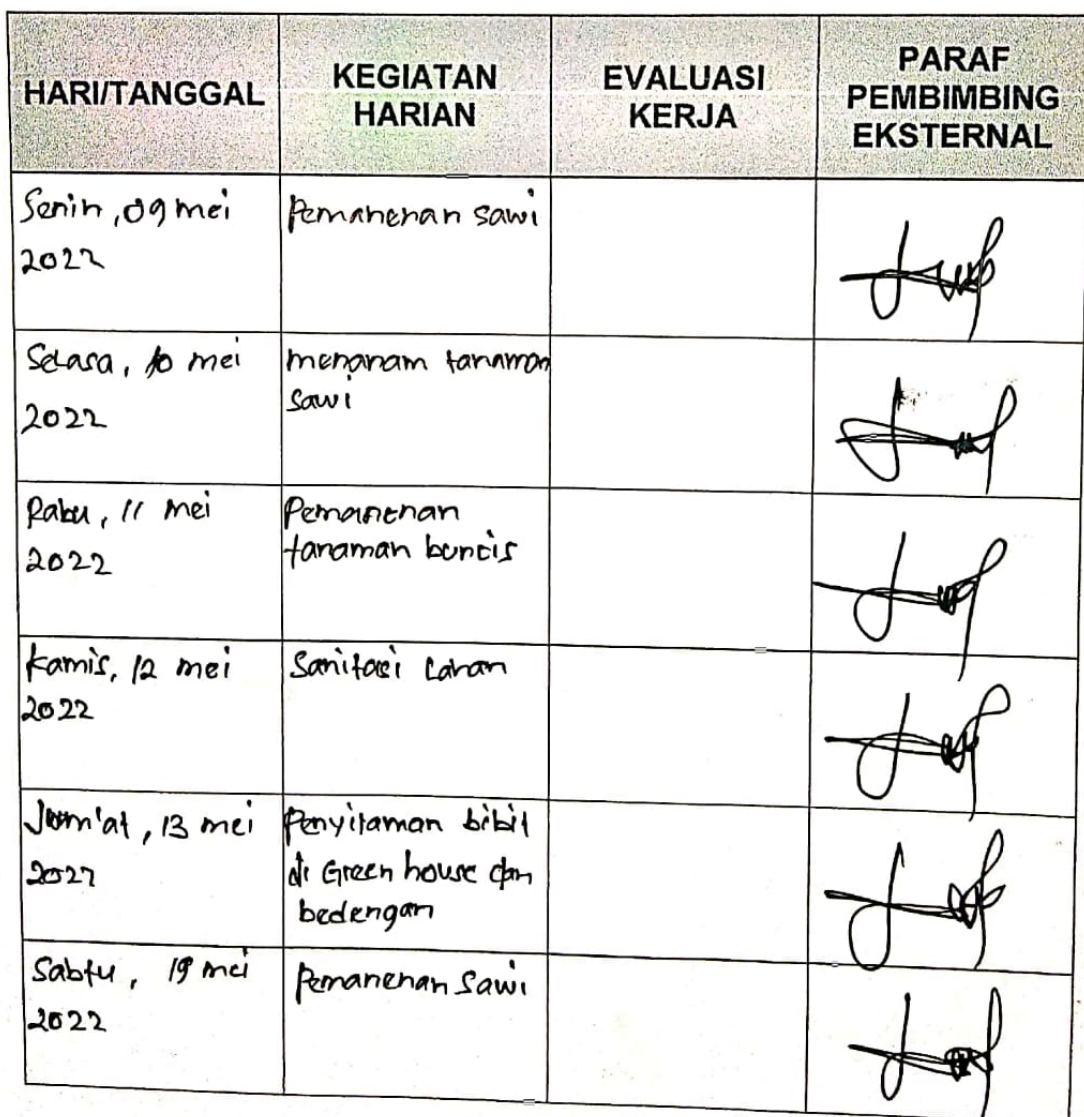 HARI/TANGGAL
KEGIATAN
HARIAN
EVALUASI
KERJA
PARAF
PEMBIMBING
EKSTERNAL
Senin, 09 mei
2022
Pemanenan sawi
Selasa, 10 mei
2022
menanam tanaman
sawi
Rabu, 11 mei
2022
Pemanenan
tanaman buncis
Kamis, 12 mei
2022
Sanitasi Lahan
Jum'at, 13 mei
2022
Penyiraman bibit
di Green house dan
bedengan
Sabtu, mei
2022
Pemanenan Sawi